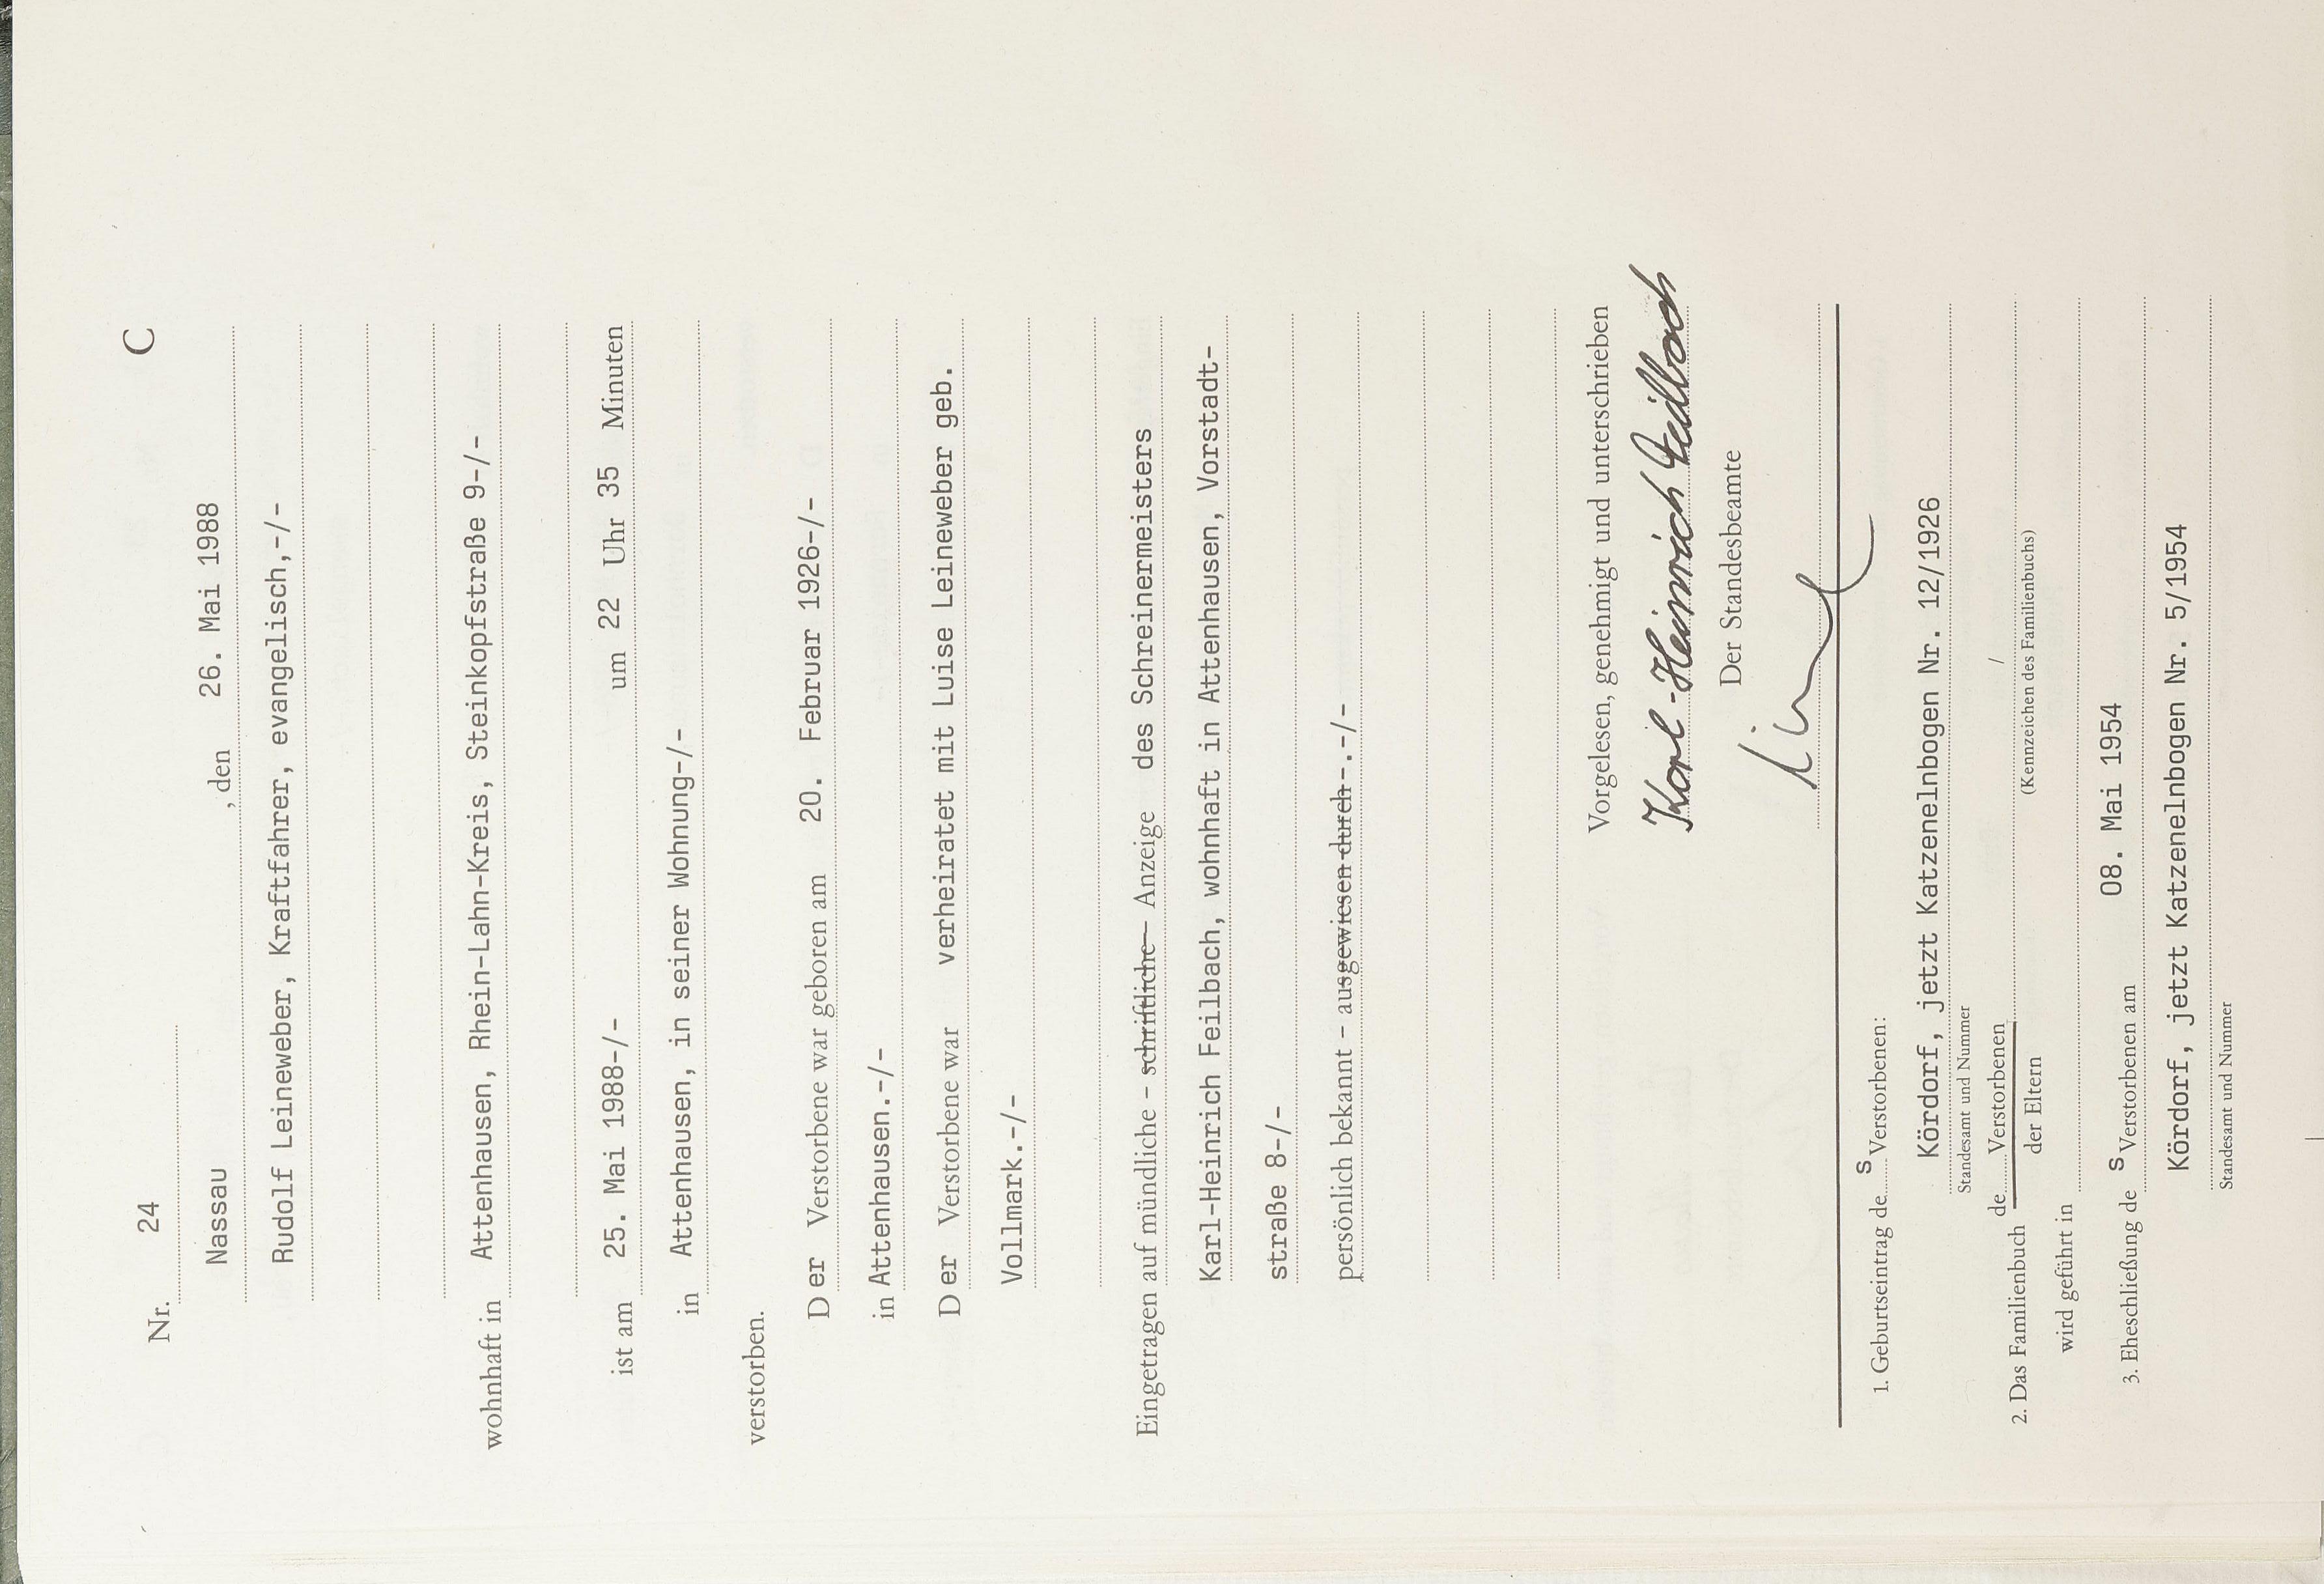 C
Nr. 24
Nassau , den 26. Mai 1988
Rudolf Leineweber, Kraftfahrer, evangelisch,-/-
wohnhaft in Attenhausen, Rhein-Lahn-Kreis, Steinkopfstraße 9-/-
ist am 25. Mai 1988-/- um 22 Uhr 35 Minuten
in Attenhausen, in seiner Wohnung-/-
verstorben.
D er Verstorbene war geboren am 20. Februar 1926-/-
in Attenhausen.-/-
D er Verstorbene war verheiratet mit Luise Leineweber geb.
Vollmark.-/-
Eingetragen auf mündliche – schriftliche – Anzeige des Schreinermeisters
Karl-Heinrich Feilbach, wohnhaft in Attenhausen, Vorstadt-
straße 8-/-
persönlich bekannt – ausgewiesen durch-.-/-
Vorgelesen, genehmigt und unterschrieben
Karl-Heinrich Feilbach
Der Standesbeamte
1. Geburtseintrag de s Verstorbenen:
Kördorf, jetzt Katzenelnbogen Nr. 12/1926
Standesamt und Nummer
de Verstorbenen /
2. Das Familienbuch
der Eltern (Kennzeichen des Familienbuchs)
wird geführt in
3. Eheschließung de s Verstorbenen am 08. Mai 1954
Kördorf, jetzt Katzenelnbogen Nr. 5/1954
Standesamt und Nummer